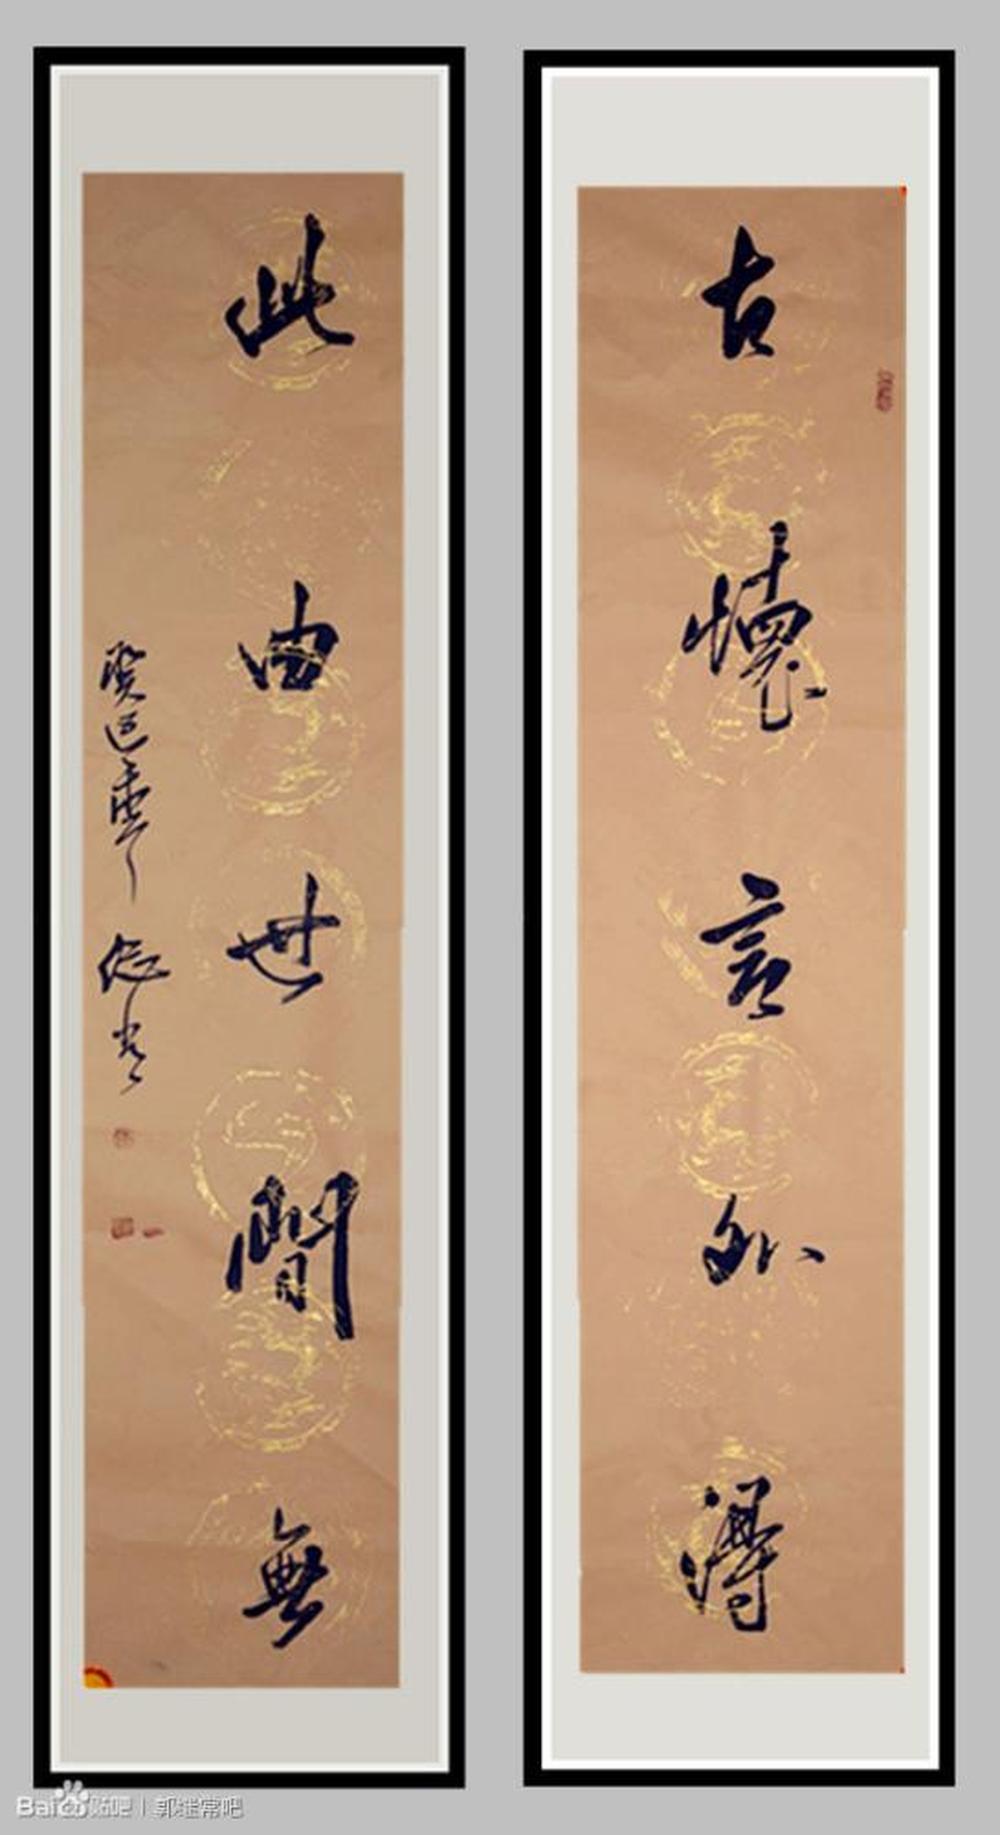 古懷言外得
此曲世間無
癸巳
Baidu贴吧 | 郭继常吧